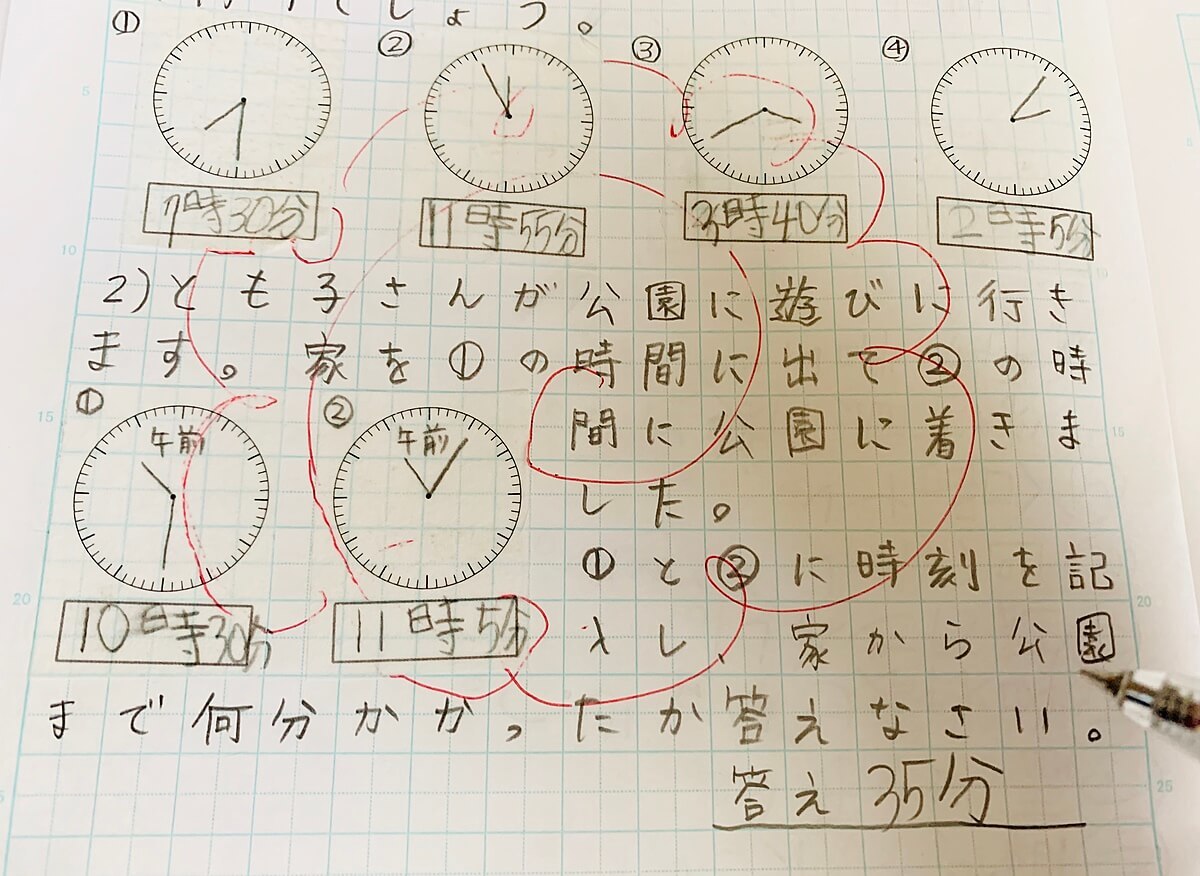 でしょう。
① ② ③ ④
7時30分 11時55分 3時40分 2時5分
2)とも子さんが公園に遊びに行き
ます。家を①の時間に出て②の時
間に公園に着きま
した。
① 午前 ② 午前
①と②に時刻を記
入し、家から公園
10時30分 11時5分
まで何分かかったか答えなさい。
答え 35分
5
10
15
20
15
20
25